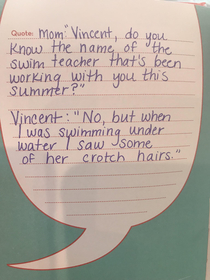 Quote: Mom "Vincent, do you
know the name of the
swim teacher that's been
working with you this
summer?"
Vincent: "No, but when
I was swimming under
water I saw some
of her crotch hairs."